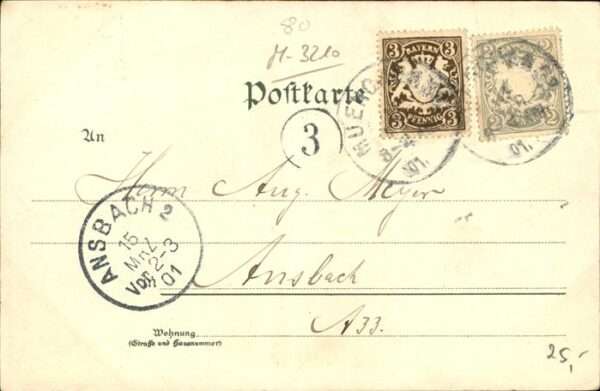 80
M-3210
Postkarte
3 BAYERN 3
3 PFENNIG 3
01.
01.
3
An
Herrn Aug. Meyer
ANSBACH 2
15
MRZ
Vor 2-3
01
Ansbach
A33.
Wohnung
(Straße und Hausnummer)
25,-